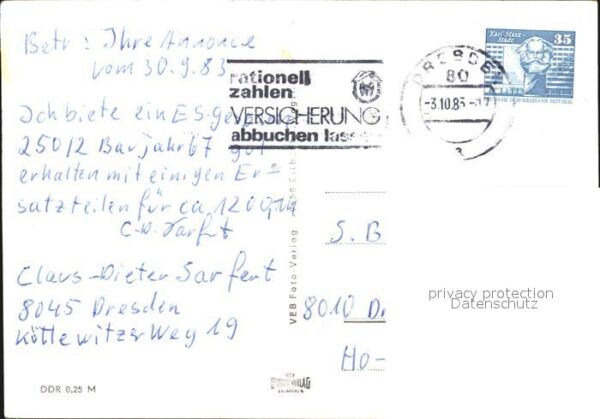 Betr: Ihre Annonce
vom 30.9.83
Ich biete ein ES
250/2 Baujahr 67 gut
erhalten mit einigen Er-
satzteilen für ca 1200,M
C-D. Sarfert
Claus-Dieter Sarfert
8045 Dresden
Köttewitzer Weg 19
DDR 0,25 M
rationell
zahlen
VERSICHERUNG
abbuchen lassen
DRESDEN
80
-3.10.83-
Karl-Marx-
Stadt
35
DEUTSCHE DEMOKRATISCHE REPUBLIK
VEB Foto-Verlag
S. B
8010 Dr
Ho-
privacy protection
Datenschutz